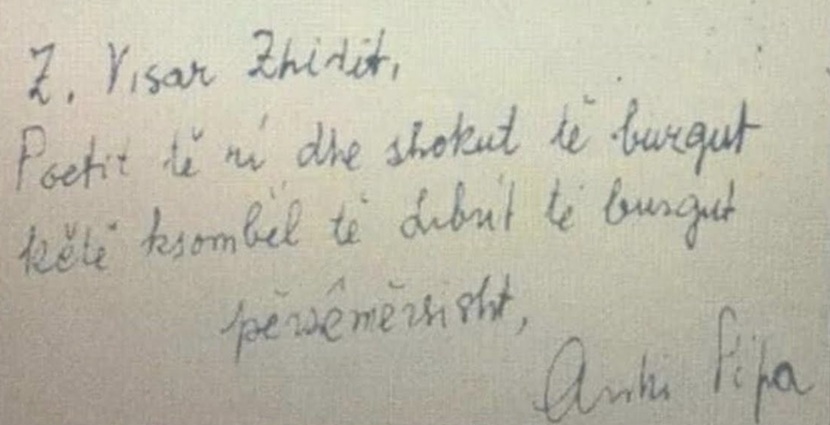 Z. Visar Zhitit,
Poetit të ri dhe shokut të burgut
këtë ksombël të Librit të burgut
përzêmërsisht,
Arshi Pipa